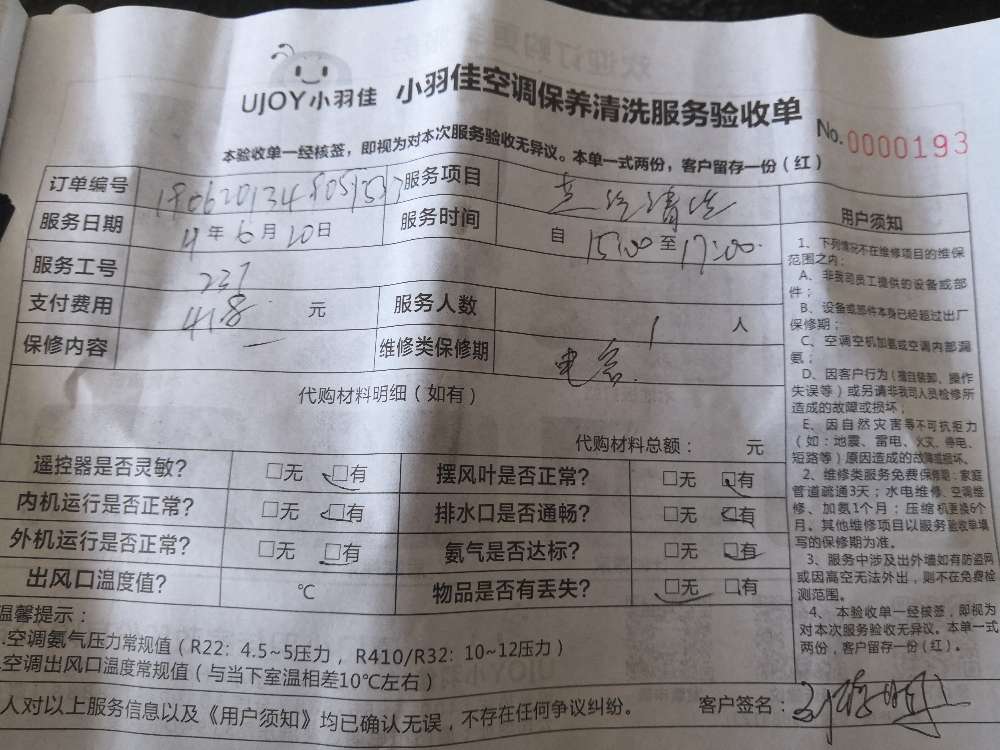 UJOY小羽佳 小羽佳空调保养清洗服务验收单
No.0000193
本验收单一经核签，即视为对本次服务验收无异议。本单一式两份，客户留存一份（红）
订单编号 服务项目
服务日期 年6月20日 服务时间 自15:00至17:00
服务工号 237
支付费用 418 元 服务人数 1 人
保修内容 维修类保修期
代购材料明细（如有）
代购材料总额： 元
遥控器是否灵敏? □无 □有 摆风叶是否正常? □无 □有
内机运行是否正常? □无 □有 排水口是否通畅? □无 □有
外机运行是否正常? □无 □有 氨气是否达标? □无 □有
出风口温度值? ℃ 物品是否有丢失? □无 □有
温馨提示：
.空调氨气压力常规值（R22：4.5~5压力，R410/R32：10~12压力）
.空调出风口温度常规值（与当下室温相差10℃左右）
人对以上服务信息以及《用户须知》均已确认无误，不存在任何争议纠纷。 客户签名：
用户须知
1、下列情况不在维修项目的维保
范围之内：
A、非我司员工提供的设备或部
件；
B、设备或部件本身已经超过出厂
保修期；
C、空调空机加氨或空调内部漏
氨；
D、因客户行为（擅自装卸、操作
失误等）或另请非我司人员检修所
造成的故障或损坏；
E、因自然灾害等不可抗拒力
（如：地震、雷电、火灾、停电、
短路等）原因造成的故障或损坏。
2、维修类服务免费保修期：家庭
管道疏通3天；水电维修、空调维
修、加氨1个月；压缩机更换6个
月。其他维修项目以服务验收单填
写的保修期为准。
3、服务中涉及出外墙如有防盗网
或因高空无法外出，则不在免费检
测范围。
4、本验收单一经核签，即视为
对本次服务验收无异议。本单一式
两份，客户留存一份（红）。